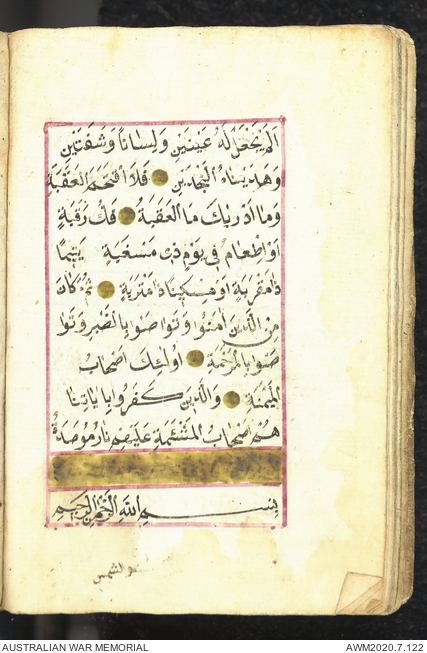 اَلَمْ يَجْعَلْ لَهُ عَيْنَيْنِ وَلِسَاناً وَشَفَتَيْنِ
وَهَدَيْنَاهُ النَّجْدَيْنِ فَلَا اقْتَحَمَ الْعَقَبَةَ
وَمَا اَدْرٰيكَ مَا الْعَقَبَةُ فَكُّ رَقَبَةٍ
اَوْ اِطْعَامٌ فِي يَوْمٍ ذِي مَسْغَبَةٍ يَتِيمًا
ذَا مَقْرَبَةٍ اَوْ مِسْكِيناً ذَا مَتْرَبَةٍ ثُمَّ كَانَ
مِنَ الَّذِينَ اٰمَنُوا وَتَوَاصَوْا بِالصَّبْرِ وَتَوَا
صَوْا بِالْمَرْحَمَةِ اُولٰئِكَ اَصْحَابُ
الْمَيْمَنَةِ وَالَّذِينَ كَفَرُوا بِاٰيَاتِنَا
هُمْ اَصْحَابُ الْمَشْئَمَةِ عَلَيْهِمْ نَارٌ مُوصَدَةٌ
بِسْمِ اللّٰهِ الرَّحْمٰنِ الرَّحِيمِ
والشمس
AUSTRALIAN WAR MEMORIAL
AWM2020.7.122